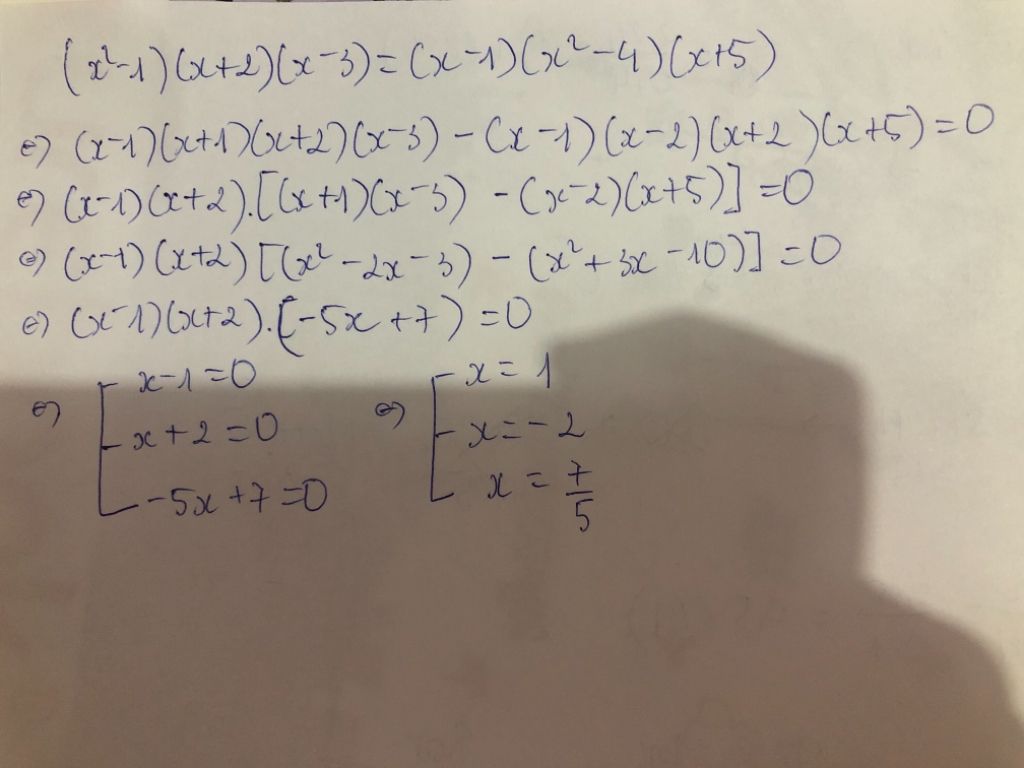 (x²-1)(x+2)(x-3)=(x-1)(x²-4)(x+5)
⇔ (x-1)(x+1)(x+2)(x-3) - (x-1)(x-2)(x+2)(x+5)=0
⇔ (x-1)(x+2).[(x+1)(x-3) - (x-2)(x+5)]=0
⇔ (x-1)(x+2)[(x²-2x-3) - (x²+3x-10)]=0
⇔ (x-1)(x+2).(-5x+7)=0
⇔ [ x-1=0 ⇔ [ x=1
x+2=0 x=-2
-5x+7=0 x=7/5